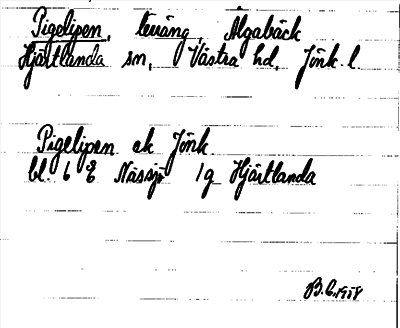 Pigelipen, teräng, Algabäck
Hjärtlanda sn, Västra hd, Jönk. l.
Pigelipen ek Jönk.
bl. 6 E Nässjö 1g Hjärtlanda
B.C. 1958